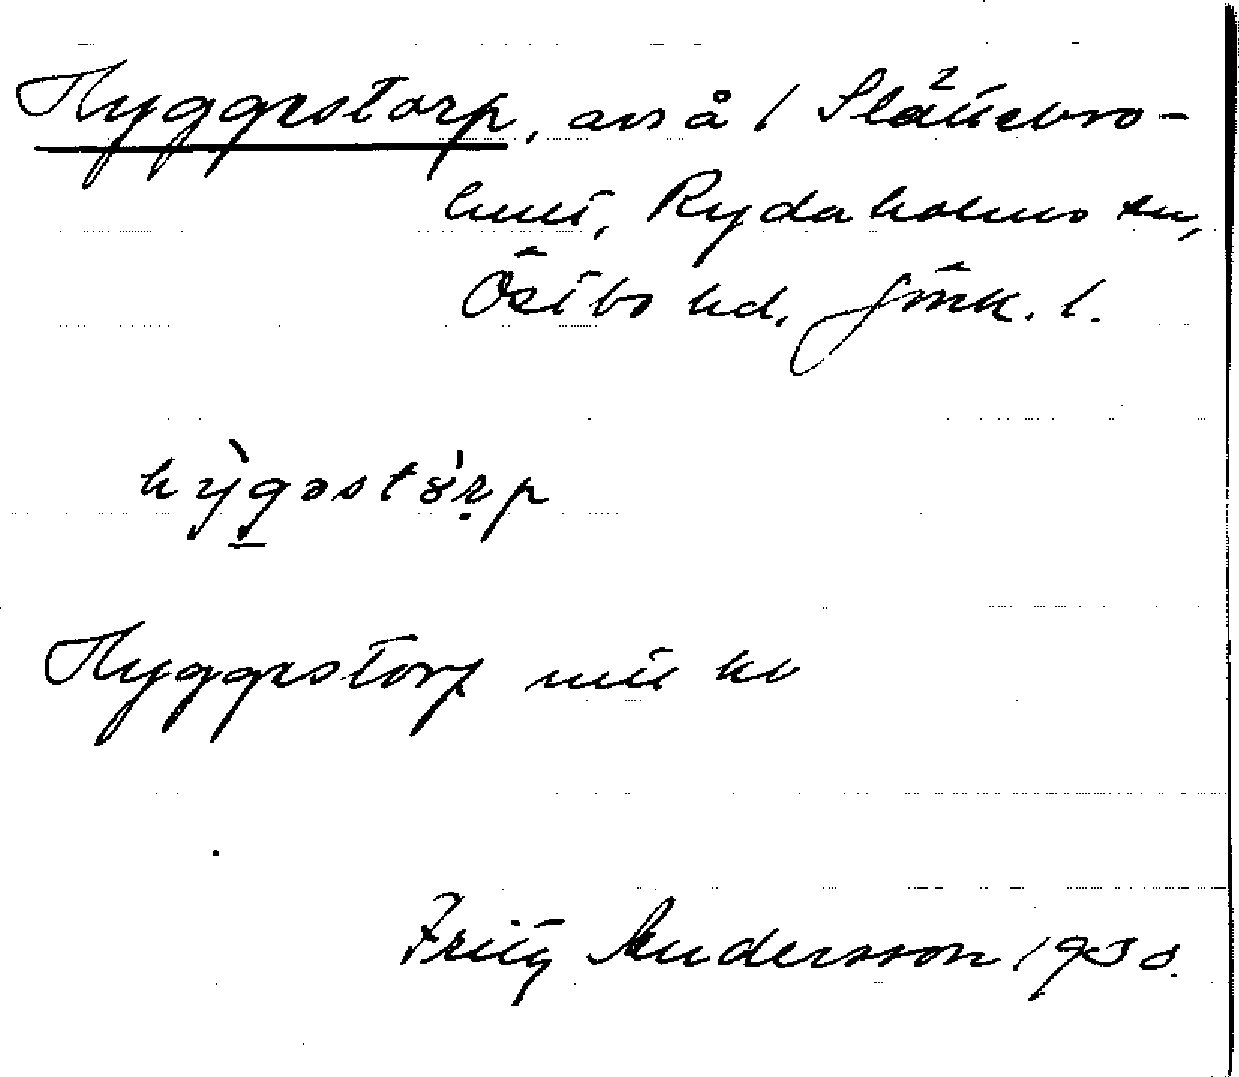 Hyggestorp, avs å 1 Slättebro-
hult, Rydaholms sn,
Östbo hd. Jönk. l.
hỳgəstɤ̀r̤p
Hyggestorp
Fritz Andersson 1933.